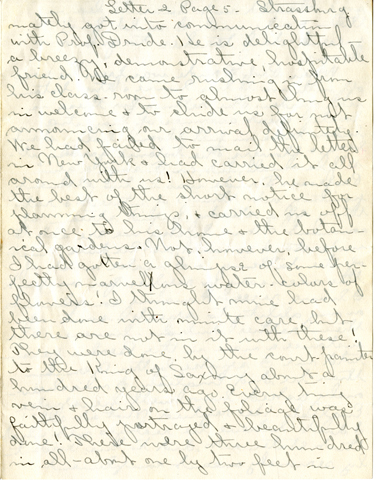 Letter 2 Page 5 - Strassburg
mately got into communication
with Prof. Drude. He is delightful
a breezy, demonstrative, hospitable
friend. He came rushing in from
his class room to almost us
in welcome & to chide us for not
announcing our arrival definitely.
We had failed to mail the letter
in New York & had carried it all
around with us! However, he made
the best of the short notice for
planning things, & carried us off
at once to his home & the botan-
ical gardens. Not, however, before
I had gotten a glimpse of some per-
fectly marvellous water-colors of
flowers. I thought mine had
been done with minute care, but
there are not in it with these!
They were done by the court painter
to the King of Saxony about a
hundred years ago. Every tiny
vein & hair on the foliage was
faithfully portrayed & beautifully
done! There were three hundred
in all - about one by two feet in